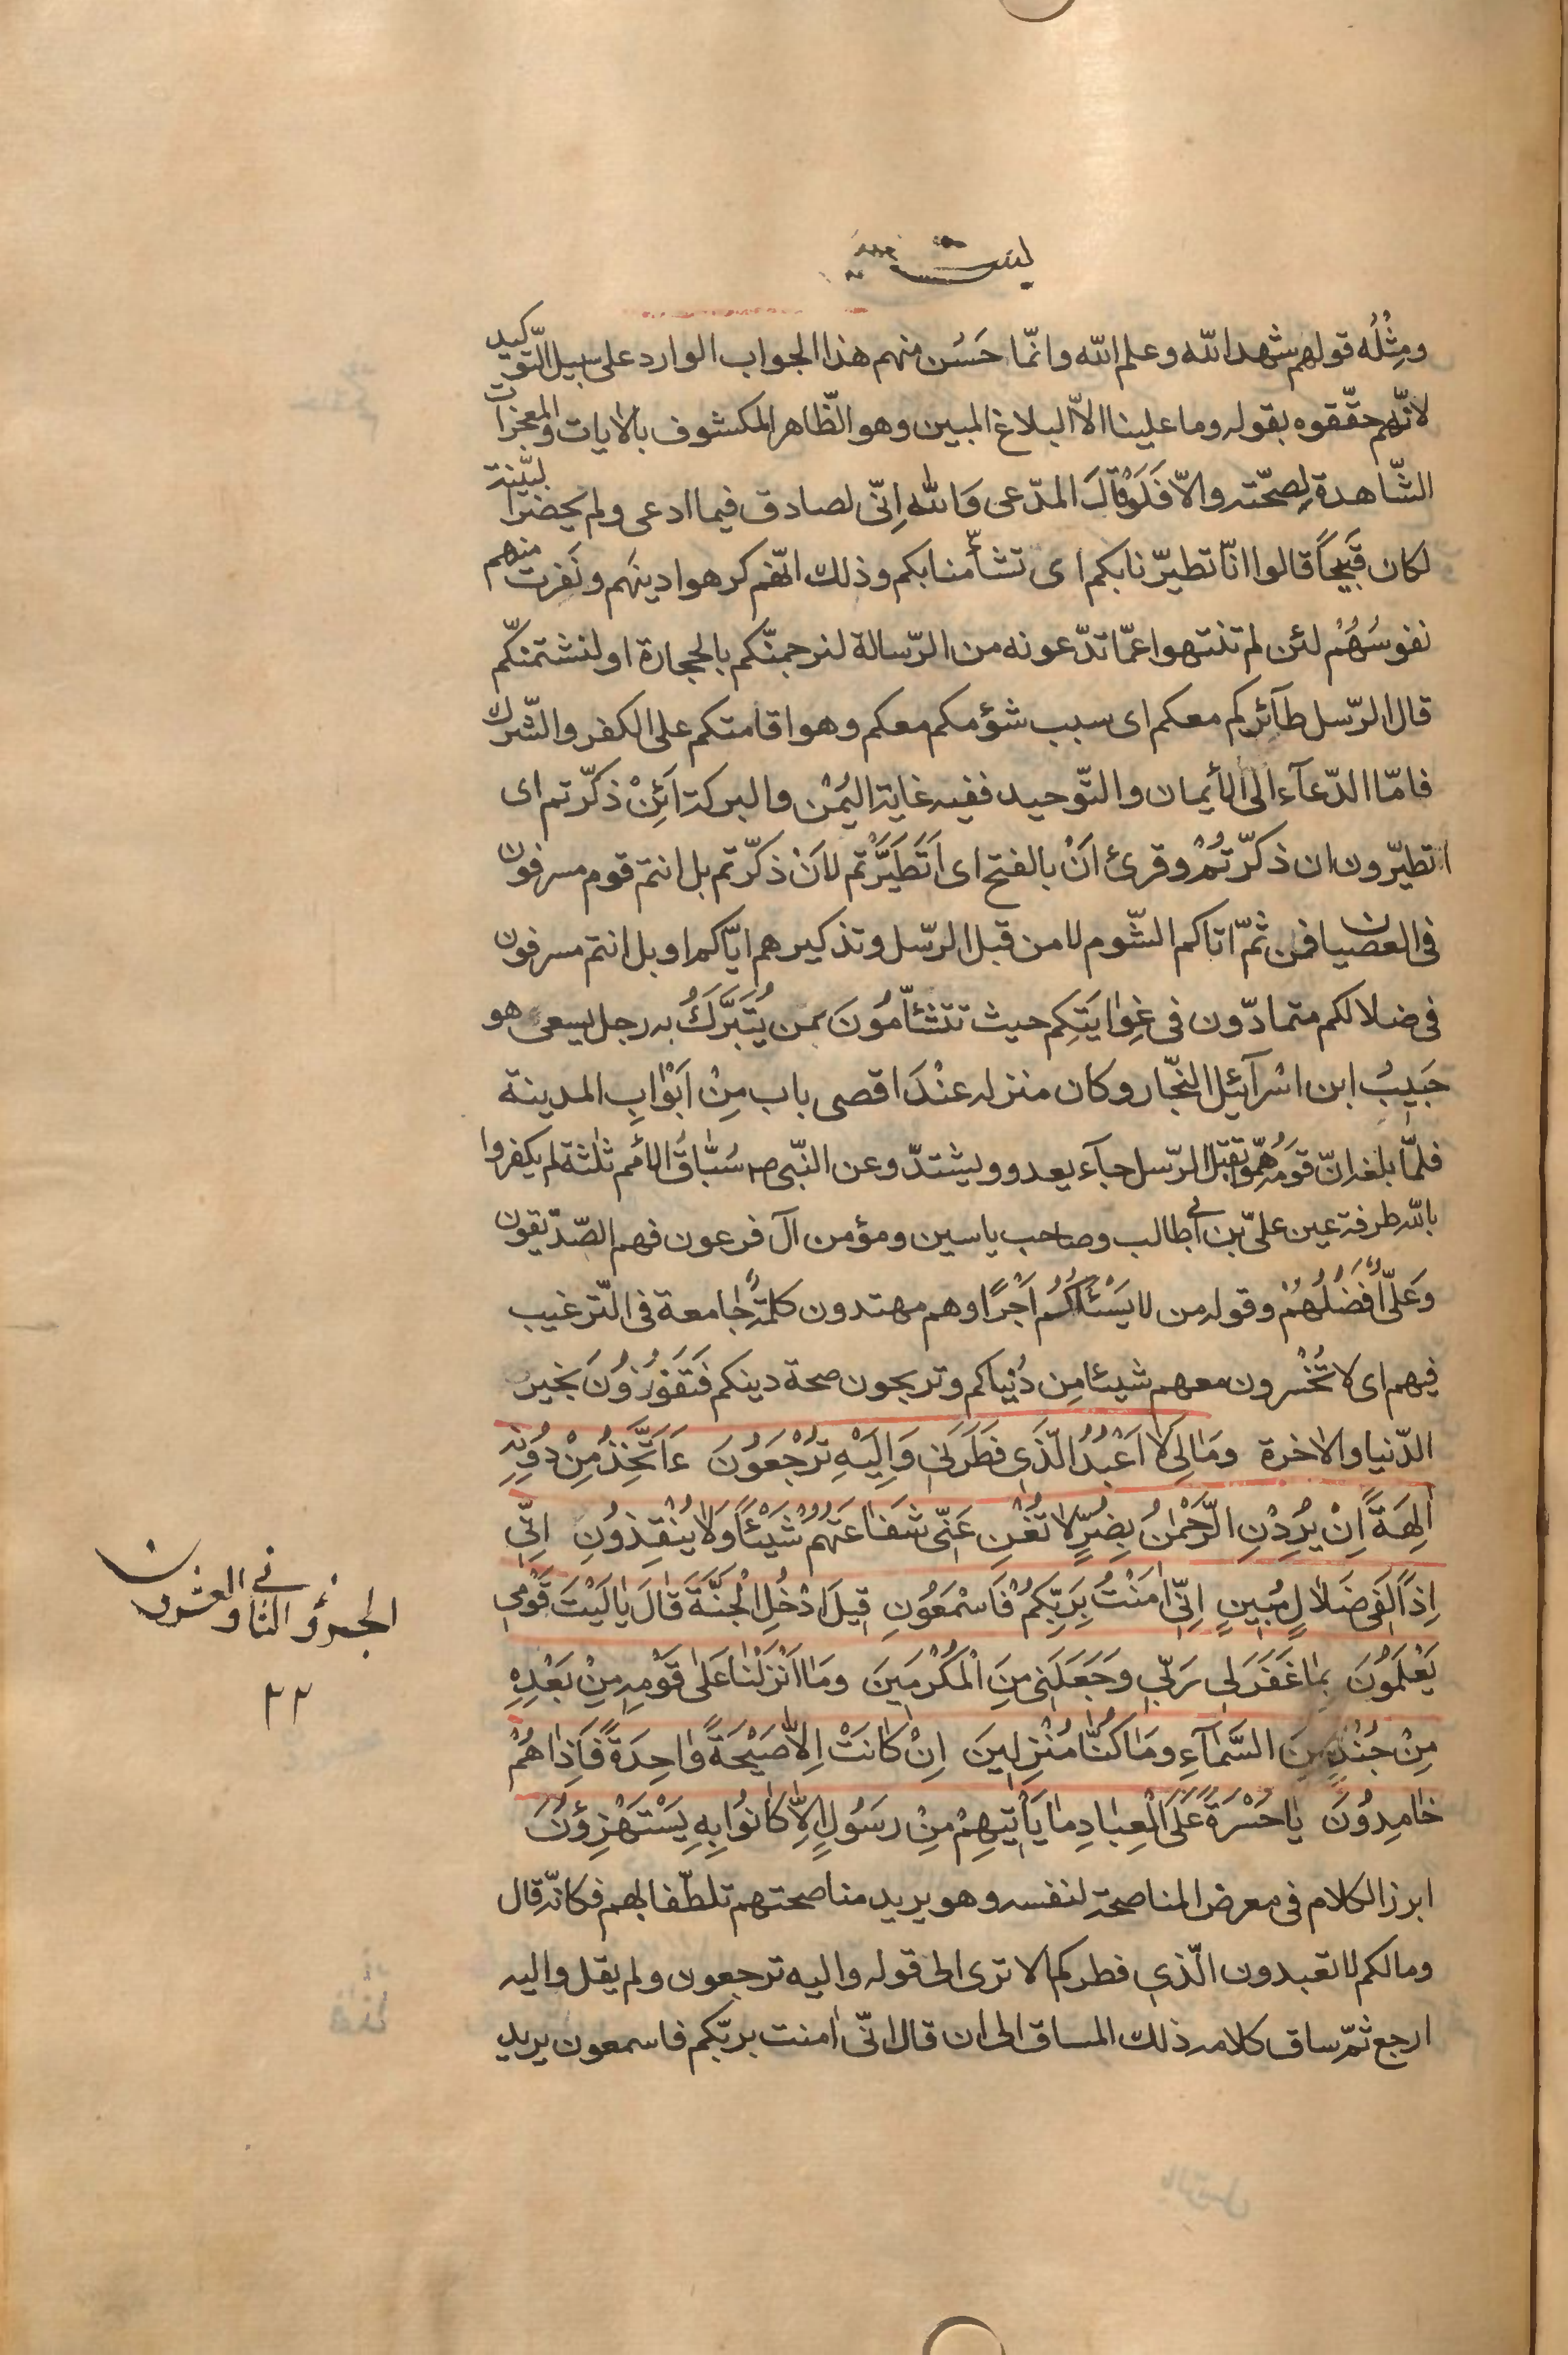 يس
ومِثْلُه قولهم شهد الله وعلم الله وانّما حَسُن منهم هذا الجواب الوارد على سبيل التّوكيد
لانّهم حقّقوه بقوله وما علينا الاّ البلاغ المبين وهو الظّاهر المكشوف بالايات والمعجزات
الشّاهدة لِصحّته والاّ فَلَوْ قالَ المدّعى وَالله اِنّى لصادق فيما ادعى ولم يحضر البيّنة
لكان قَبيحاً قالوا انّا تطيّرنا بكم اى تشأّمنا بكم وذلك انّهم كرهوا دينَهم ونَفرت منهم
نفوسُهُمْ لئن لم تنتهوا عمّا تدّعونه من الرّسالة لنرجمنّكم بالحجارة او لنشتمنّكم
قال الرّسل طآئركم معكم اى سبب شؤمكم معكم وهو اقامتكم على الكفر والشّرك
فامّا الدّعآء الى الأيمان والتّوحيد ففيه غاية اليُمْن والبركة ائِنْ ذكّرتم اى
اتطيّرون ان ذكّرتُمْ وقرئ اَنْ بالفتح اى اَتَطَيَّرْتم لاَنْ ذكّرتم بل انتم قوم مسرفون
فى العصيان فمن ثمّ اتاكم الشّوم لا من قبل الرّسل وتذكيرهم ايّاكم او بل انتم مسرفون
فى ضلالكم متمادّون فى غِوايَتِكِم حيث تتشأّمُونَ بمن يُتَبَرَّكُ به رجل يسعى هو
حَبيبُ ابن اسْرآئيل النجّار وكان منزله عِنْدَ اقصى باب مِنْ اَبْوابِ المدينة
فلمّا بلغه انّ قومَهُ همّوا بقتل الرّسل جآء يعدو ويشتدّ وعن النّبى ص سُبّاقُ الامم ثلثة لم يكفروا
بالله طرفة عين علىّ بن أبى طالب وصاحب ياسين ومؤمن آل فرعون فهم الصّدّيقون
وَعَلىّ اَفْضَلُهُمْ وقوله من لا يَسْئَلُكُم اَجْرًا وهم مهتدون كلمةٌ جامعة فى التّرغيب
فيهم اى لا تَخْسرون معهم شيئا مِن دُنياكم وتربحون صحة دينكم فَتَفوُزوُنَ بخير
الدّنيا والاخرة ومَالِىَ لا اَعْبُدُ الَّذى فَطَرَنى وَاِلَيْهِ تُرْجَعوُنَ ءَاَتَّخِذُ مِنْ دوُنِهِ
الِهَةً اِنْ يُرِدْنِ الرَّحْمنُ بِضُرٍّ لا تُغْنِ عَنّى شَفاعَتُهُمْ شَيْئًا وَلا يُنْقِذوُنِ اِنّى
اِذًا لَفى ضَلالٍ مُبينٍ اِنّى امَنْتُ بِرَبِّكُمْ فَاسْمَعوُنِ قيلَ ادْخُلِ الْجَنَّةَ قالَ يا لَيْتَ قَوْمى
يَعْلَموُنَ بِما غَفَرَ لى رَبّى وَجَعَلَنى مِنَ الْمُكْرَمينَ وَما اَنْزَلْنا عَلى قَوْمِهِ مِنْ بَعْدِهِ
مِنْ جُنْدٍ مِنَ السَّمآءِ وَما كُنّا مُنْزِلينَ اِنْ كانَتْ اِلاّ صَيْحَةً واحِدَةً فَاِذا هُمْ
خامِدوُنَ يا حَسْرَةً عَلَى الْعِبادِ ما يَأْتيهِمْ مِنْ رَسوُلٍ اِلاّ كانوُا بِهِ يَسْتَهْزِؤُنَ
ابرز الكلام فى معرض المناصحة لنفسه وهو يريد مناصحتهم تلطّفا بهم فكانّه قال
ومالكم لا تعبدون الّذى فطركم الا ترى الى قوله واليه ترجعون ولم يقل واليه
ارجع ثمّ ساق كلامه ذلك المساق الى ان قال انّى امنت بربّكم فاسمعون يريد
الجزؤ الثانى والعشرون
٢٢